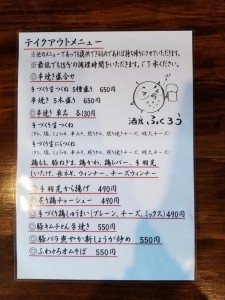 テイクアウトメニュー
※他のメニューであっても提供できるものであれば持ち帰りにさせていただきます。
※最低でも15分の調理時間をいただきます。ご了承ください。
◎串焼き盛合せ
手づくり生つくね 5種盛り 650円
串焼き 5本盛り 650円
◎串焼き 単品 各130円
手づくり生つくね
手づくり生にらつくね
鶏もも、豚ねぎま、鶏かわ、鶏レバー、手羽先
しいたけ、長ネギ、ウィンナー、チーズウィンナー
酒処 ふくろう
◎手羽先から揚げ 490円
◎炙り鶏チャーシュー 490円
◎手づくり鶏しゅうまい(プレーン、チーズ、ミックス) 490円
◎豚キムチとん平焼き 550円
◎豚バラ爽やか新しょうが炒め 550円
◎ふわとろオムそば 550円